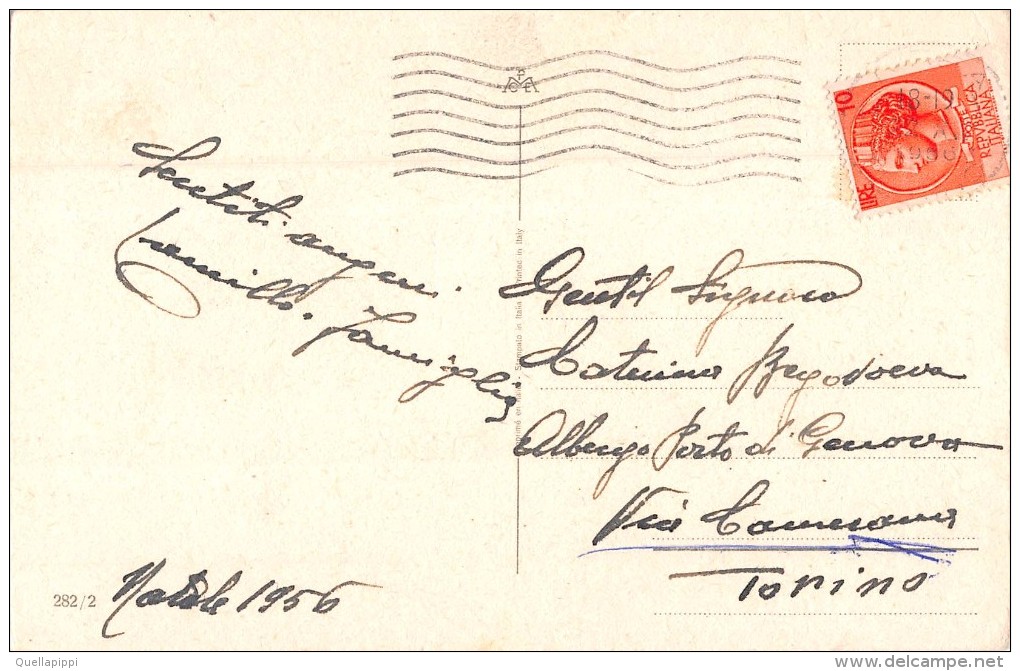 Sentiti auguri.
Camillo. Famiglia
Natale 1956
282/2
Imprimé en Italie - Stampato in Italia - Printed in Italy
18-19
1956
10
LIRE
REPUBBLICA
ITALIANA
Gentil Signora
Caterina
Albergo Porto di Genova
Via
Torino
Quellapippi
delcampe.net